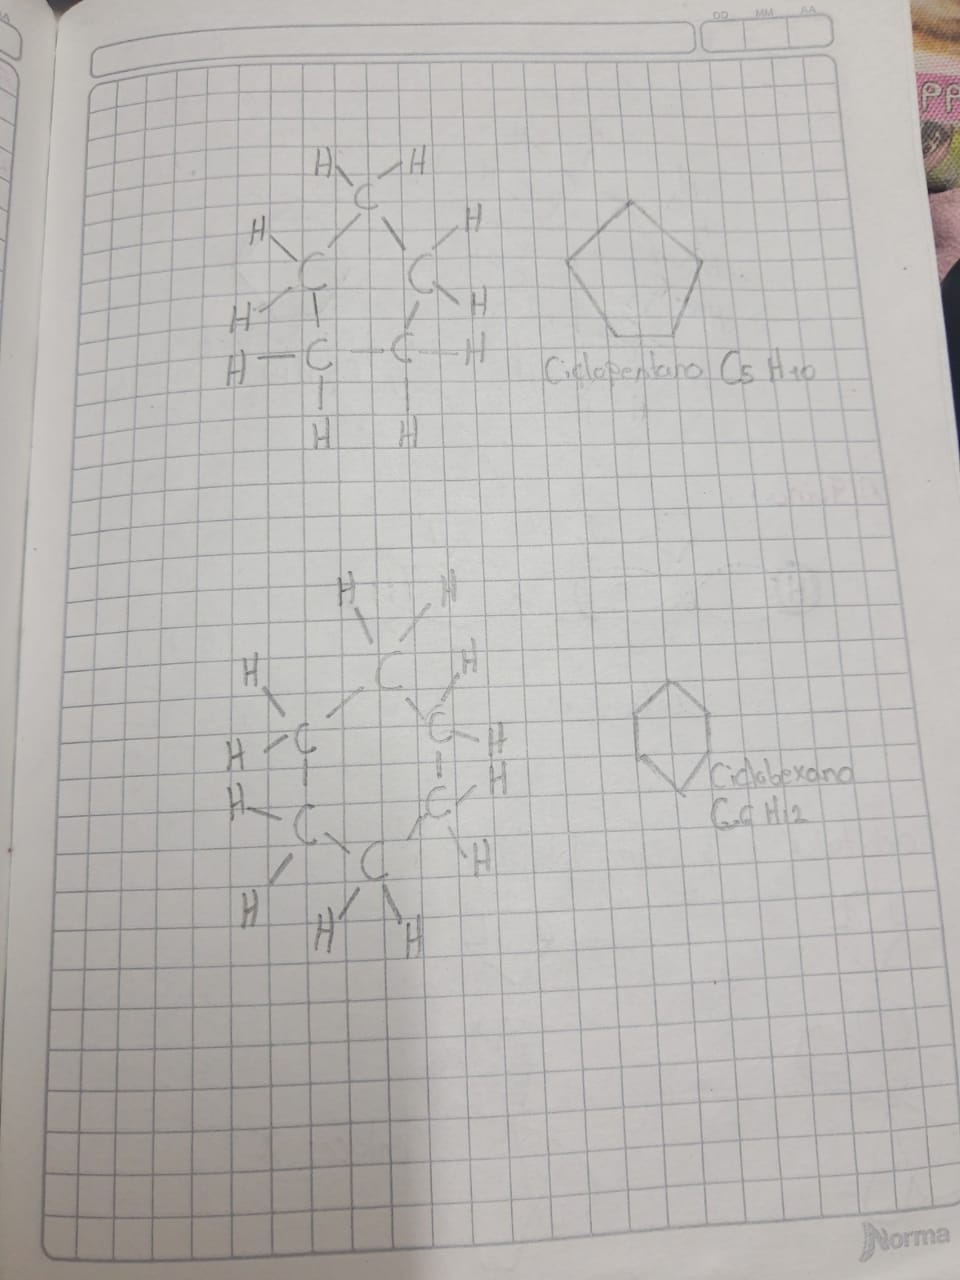 DD MM AA
H H
C
H H
C C
H H
H C C H
H H
Ciclopentano C5 H10
H H
C H
H
C C H
H H
H C C
H
C
H H H
Ciclohexano
C6 H12
Norma